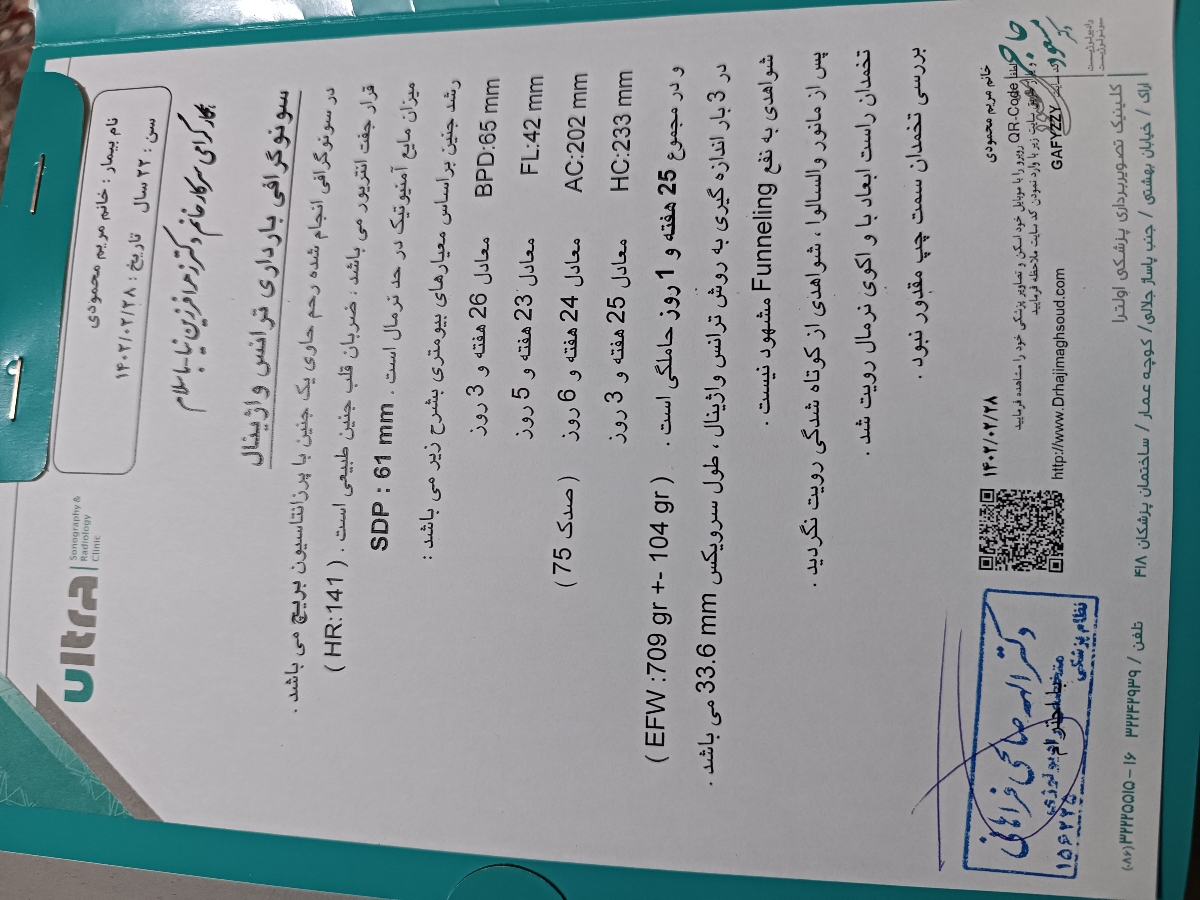 ultra
Sonography &
Radiology
Clinic
نام بیمار : خانم مریم محمودی
سن : ۲۲ سال تاریخ : ۱۴۰۲/۰۲/۲۸
همکار گرامی سرکار خانم دکتر زهرا فرزین نیا - باسلام
سونوگرافی بارداری ترانس واژینال
در سونوگرافی انجام شده رحم حاوی یک جنین با پرزانتاسیون بریچ می باشد .
قرار جفت انتریور می باشد . ضربان قلب جنین طبیعی است . ( HR:141 )
میزان مایع آمنیوتیک در حد نرمال است . SDP : 61 mm
رشد جنین براساس معیارهای بیومتری بشرح زیر می باشد :
BPD:65 mm معادل 26 هفته و 3 روز
FL:42 mm معادل 23 هفته و 5 روز
AC:202 mm معادل 24 هفته و 6 روز ( صدک 75 )
HC:233 mm معادل 25 هفته و 3 روز
و در مجموع 25 هفته و 1 روز حاملگی است . ( EFW :709 gr +- 104 gr )
در 3 بار اندازه گیری به روش ترانس واژینال ، طول سرویکس 33.6 mm می باشد .
شواهدی به نفع Funneling مشهود نیست .
پس از مانور والسالوا ، شواهدی از کوتاه شدگی رویت نگردید .
تخمدان راست ابعاد با و اکوی نرمال رویت شد .
بررسی تخمدان سمت چپ مقدور نبود .
خانم مریم محمودی ۱۴۰۲/۰۲/۲۸
لطفا QR-Code روبرو را با موبایل خود اسکن و تصاویر پزشکی خود را مشاهده فرمایید
زیر با وارد نمودن کد سایت ملاحظه فرمایید
GAFYZZY http://www.Drhajimaghsoud.com
دکتر
مسعود
حاج
رادیولوژیست
سونولوژیست
دکتر الهه صالحی فراهانی
متخصص رادیولوژی
نظام پزشکی ۱۵۶۲۴۵
با احترام
کلینیک تصویربرداری پزشکی اولترا
اراک / خیابان بهشتی / جنب پاساژ جلالی / کوچه عمار / ساختمان پزشکان ۴۱۸ تلفن / ۳۲۲۴۲۹۳۹ ۱۶ - ۳۲۲۲۵۵۱۵ (۰۸۶)